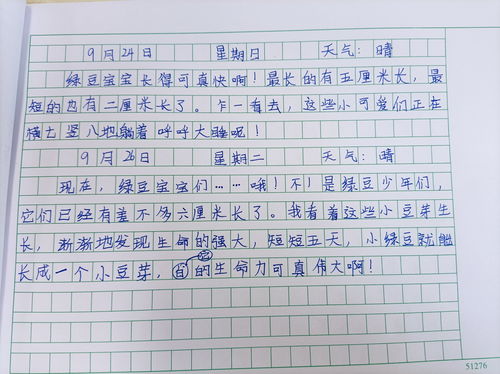 9月24日 星期日 天气:晴
绿豆宝宝长得可真快啊!最长的有五厘米长,最
短的也有二厘米长了。乍一看去,这些小可爱们正在
横七竖八地躺着呼呼大睡呢!
9月26日 星期二 天气:晴
现在,绿豆宝宝们……哦!不!是绿豆少年们,
它们已经有差不多六厘米长了。我看着这些小豆芽生
长,渐渐地发现生命的强大,短短五天,小绿豆就能
长成一个小豆芽,它的生命力可真伟大啊!
51276